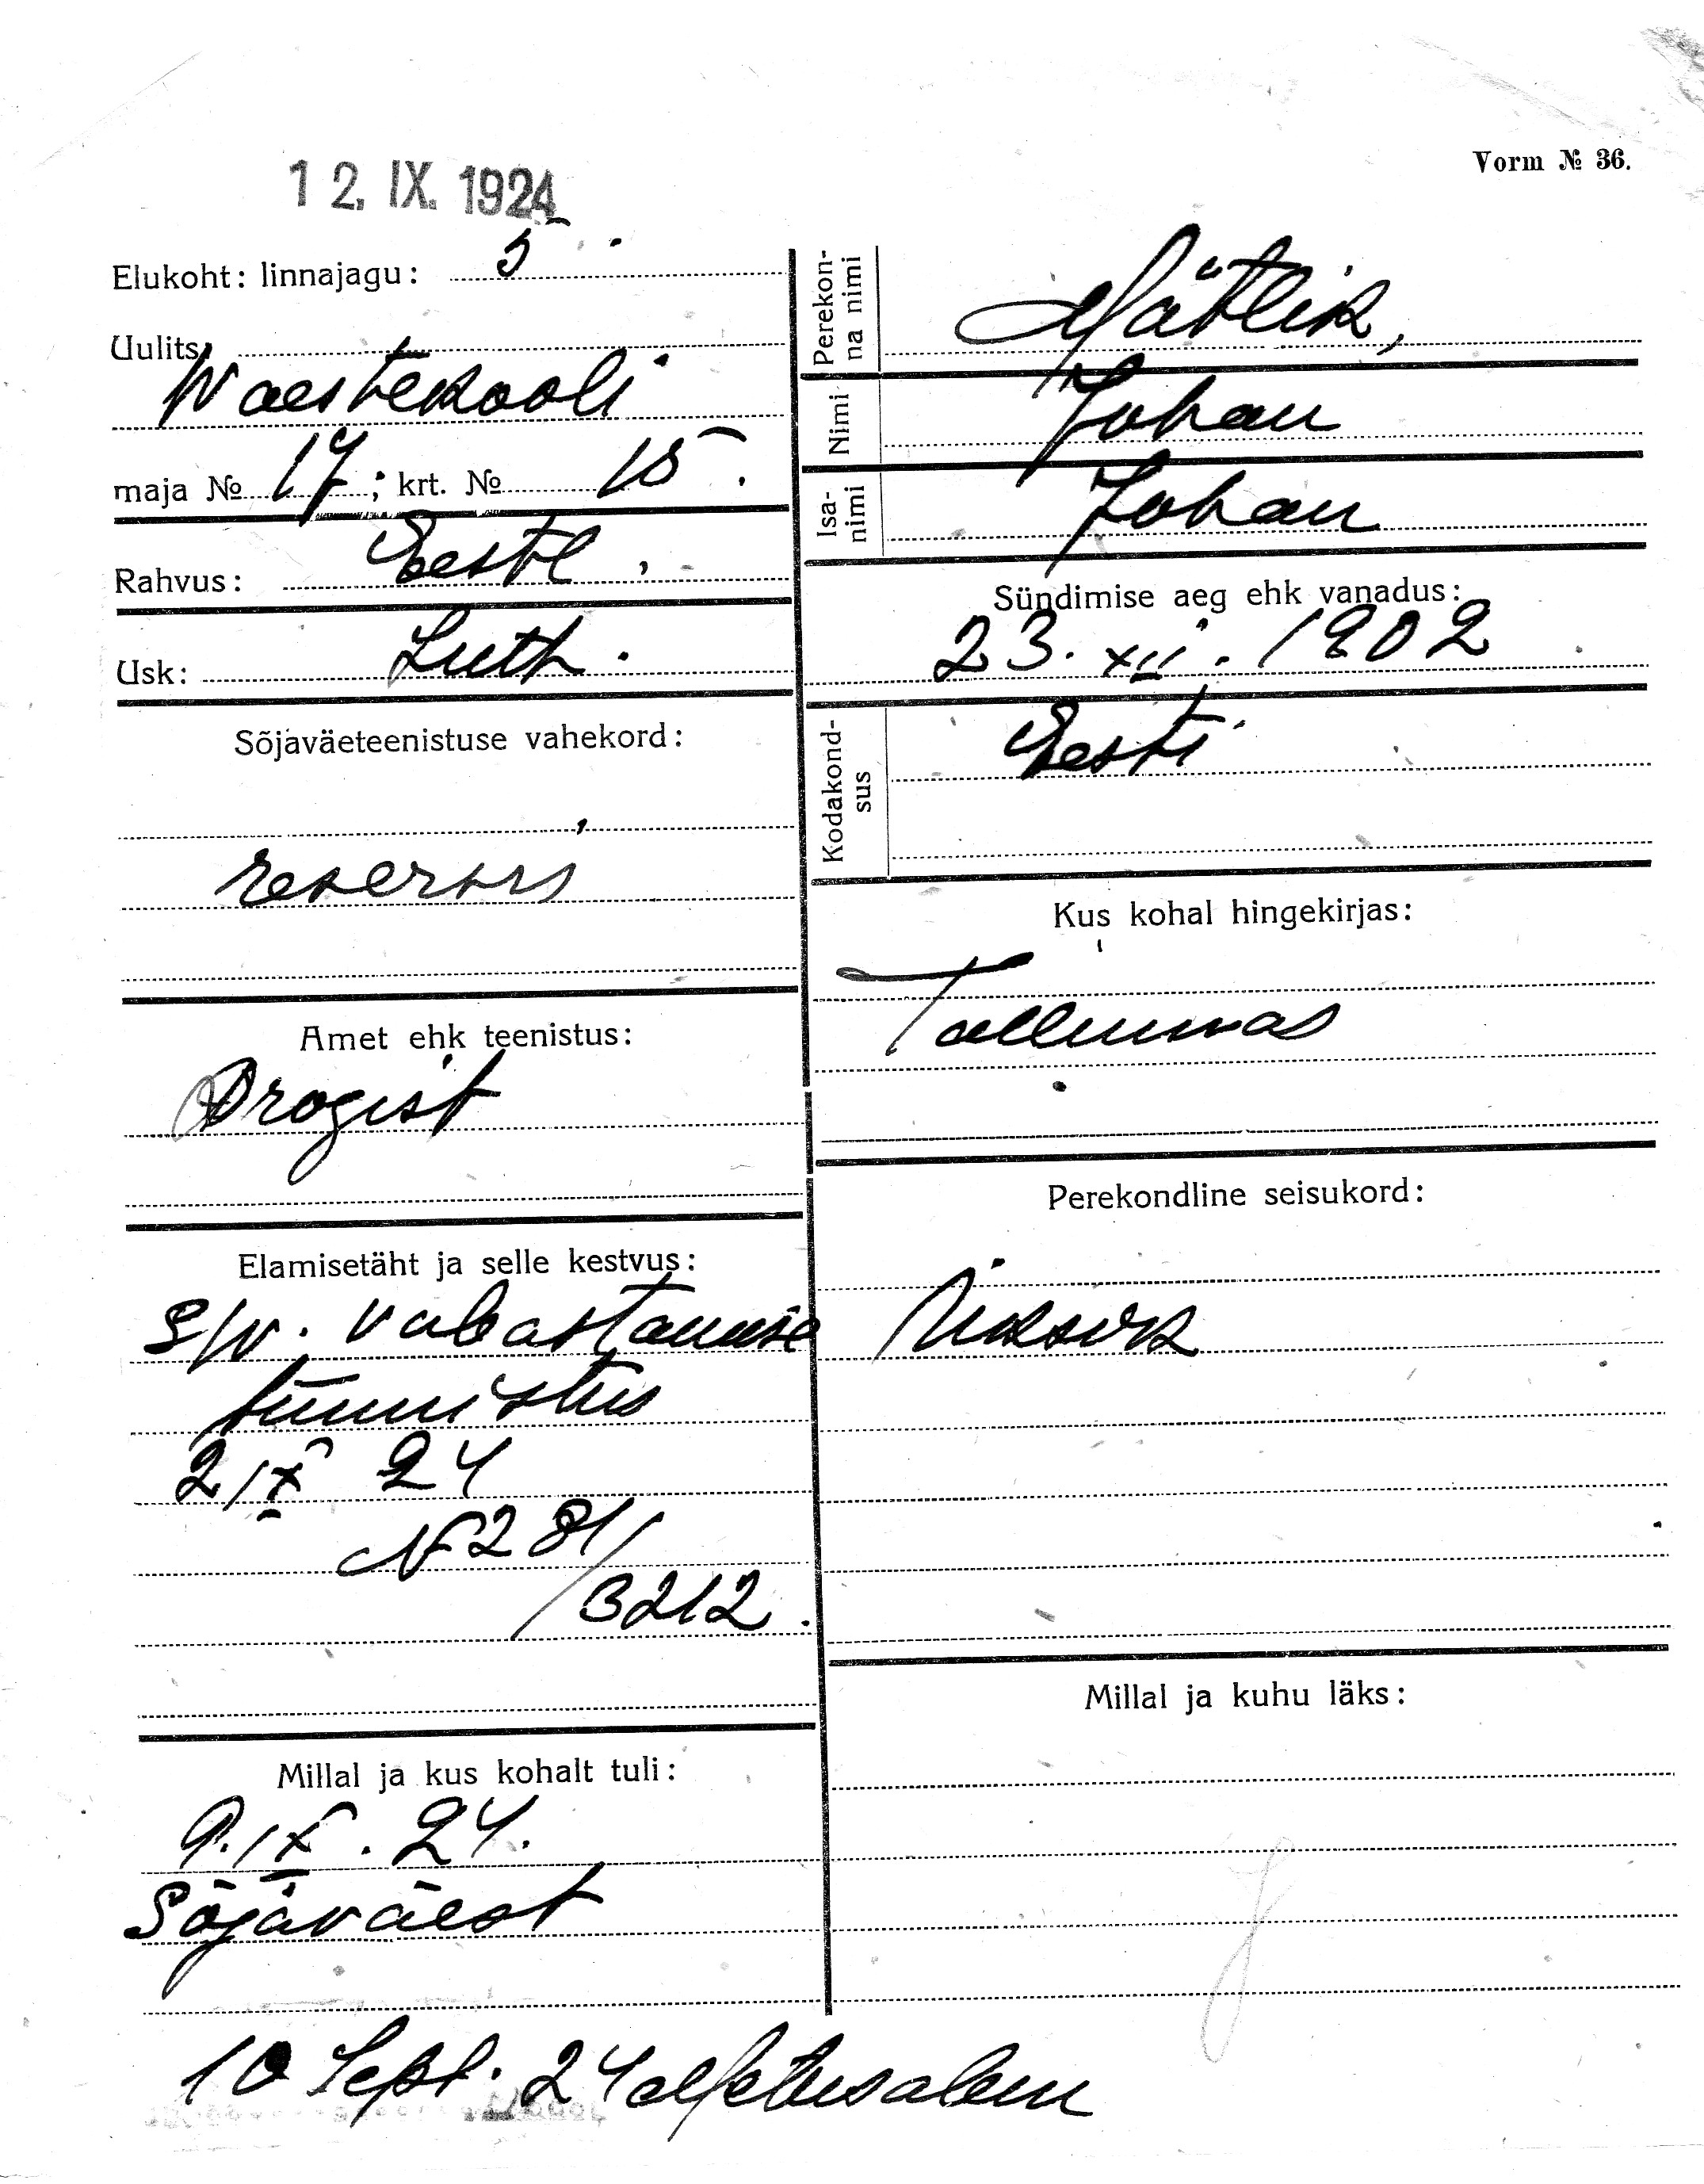 12. IX. 1924
Vorm № 36.
Elukoht: linnajagu: 5
Uulits:
Waestekooli
maja № 17; krt. № 15.
Rahvus: Eestl.
Usk: Luth.
Sõjaväeteenistuse vahekord:
reservis
Amet ehk teenistus:
Drogist
Elamisetäht ja selle kestvus:
S/v. vabastamise
tunnistus
2/IX 24
№ 281/
3212.
Millal ja kus kohalt tuli:
9. IX. 24.
Sõjaväest
Perekonna nimi Mätlik,
Nimi Johan
Isanimi Johan
Sündimise aeg ehk vanadus:
23. XII. 1902
Kodakondsus Eesti
Kus kohal hingekirjas:
Tallinnas
Perekondline seisukord:
Üksik
Millal ja kuhu läks:
10 Sept. 24 Metusalem